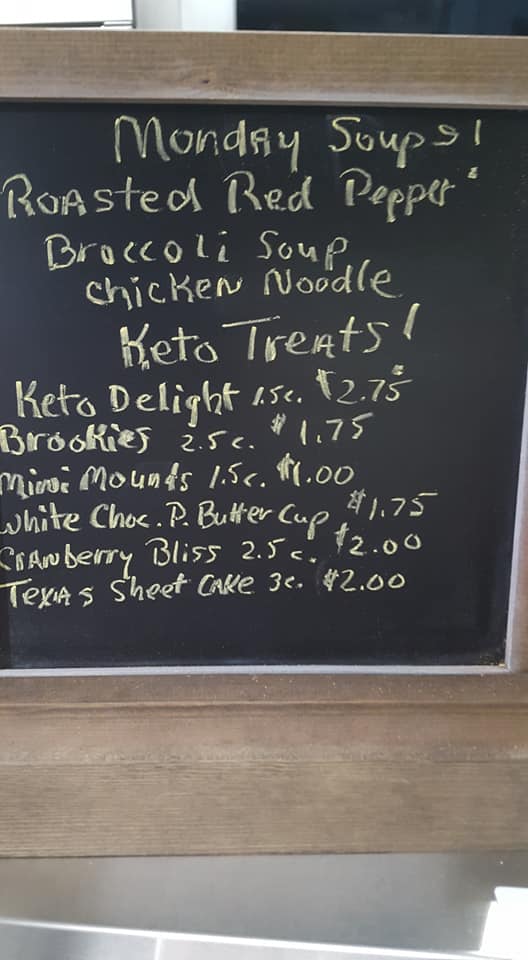 Monday Soups!
Roasted Red Pepper
Broccoli Soup
Chicken Noodle
Keto Treats!
Keto Delight 1.5c. $2.75
Brookies 2.5c. $1.75
Mini Mounds 1.5c. $1.00
White Choc. P. Butter Cup $1.75
Cranberry Bliss 2.5c. $2.00
Texas Sheet Cake 3c. $2.00